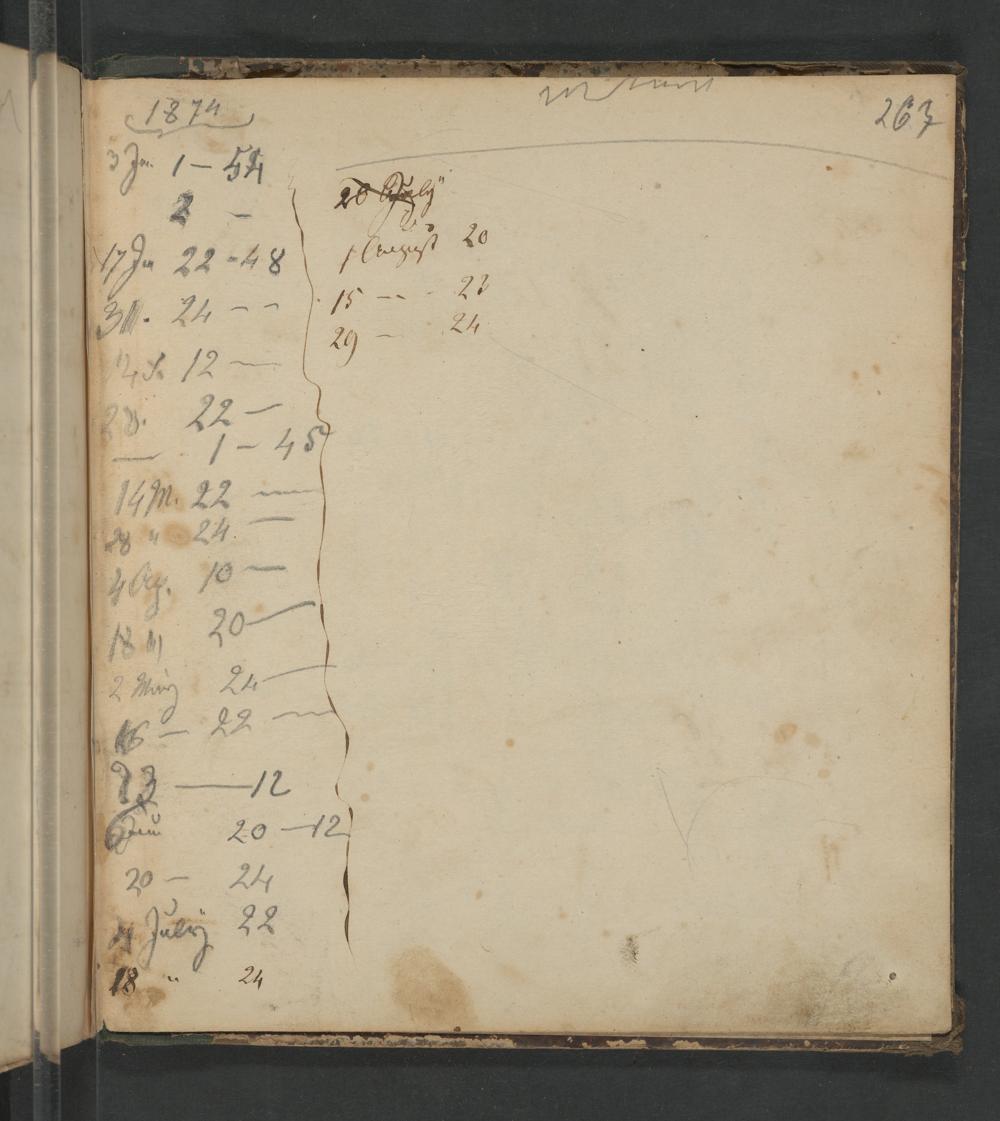 263
1874
3 Jn. 1 — 54
2 —
17 Jn 22 - 48
31. 24 - -
12 —
28. 22 —
— 1 - 45
14 M. 22 —
28 " 24 —
4 Ap. 10 —
18 " 20 —
2 May 24 —
16 — 22 —
23 — 12
6 Juni 20 — 12
20 — 24
4 Julÿ 22
18 " 24
1 August 20
15 — - 23
29 — 24